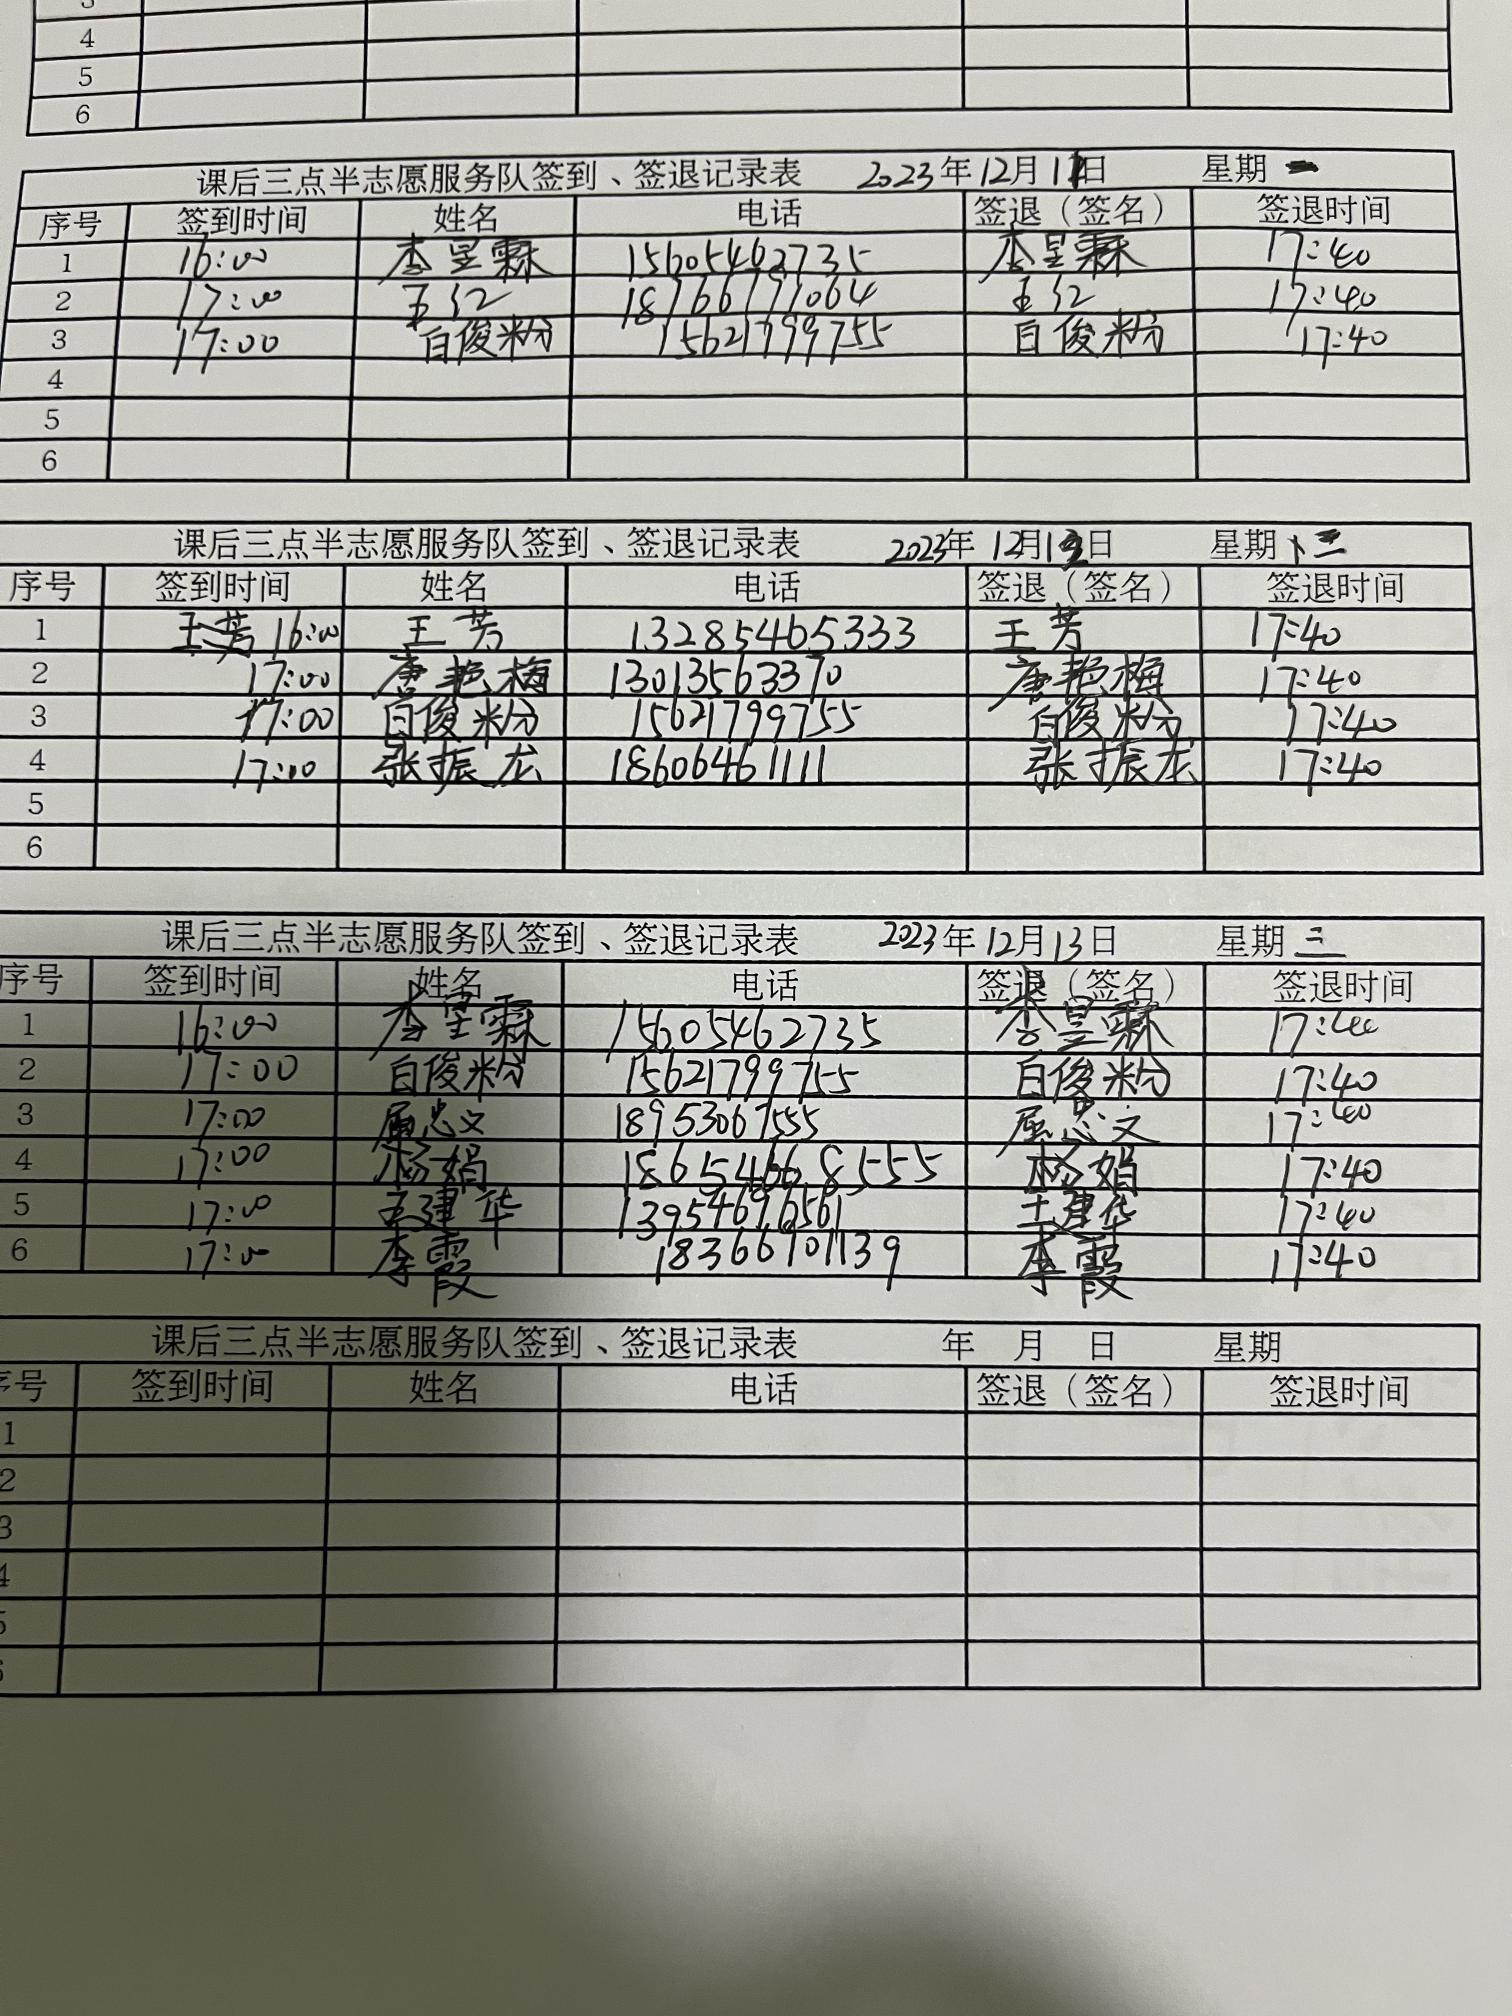 4
5
6
课后三点半志愿服务队签到、签退记录表 2023年12月11日 星期一
序号 签到时间 姓名 电话 签退（签名） 签退时间
1 16:00 李昱霖 15605462735 李昱霖 17:40
2 17:00 王红 18766791064 王红 17:40
3 17:00 白俊粉 15621799755 白俊粉 17:40
4
5
6
课后三点半志愿服务队签到、签退记录表 2023年12月12日 星期二
序号 签到时间 姓名 电话 签退（签名） 签退时间
1 16:00 王芳 13285465333 王芳 17:40
2 17:00 唐艳梅 13013563370 唐艳梅 17:40
3 17:00 白俊粉 15621799755 白俊粉 17:40
4 17:00 张振龙 18606461111 张振龙 17:40
5
6
课后三点半志愿服务队签到、签退记录表 2023年12月13日 星期三
序号 签到时间 姓名 电话 签退（签名） 签退时间
1 16:00 李昱霖 15605462735 李昱霖 17:40
2 17:00 白俊粉 15621799755 白俊粉 17:40
3 17:00 屈忠文 18953067555 屈忠文 17:40
4 17:00 杨娟 18654668555 杨娟 17:40
5 17:00 王建华 13954696561 王建华 17:40
6 17:00 李霞 18366901139 李霞 17:40
课后三点半志愿服务队签到、签退记录表 年 月 日 星期
序号 签到时间 姓名 电话 签退（签名） 签退时间
1
2
3
4
5
6